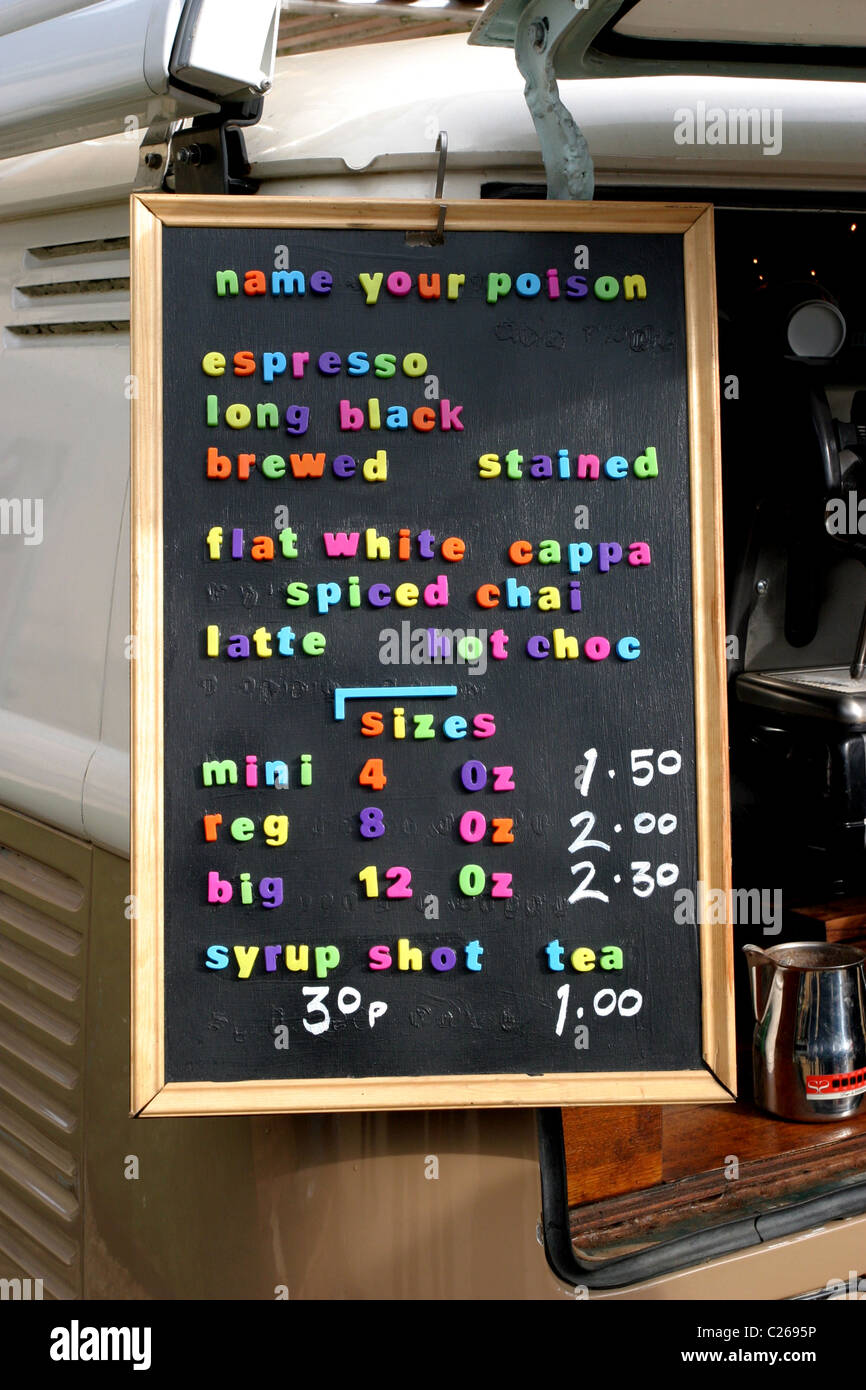 name your poison
espresso
long black
brewed stained
flat white cappa
spiced chai
latte hot choc
sizes
mini 4 oz 1.50
reg 8 oz 2.00
big 12 oz 2.30
syrup shot tea
30p 1.00
alamy stock photo
C2695P
www.alamy.com